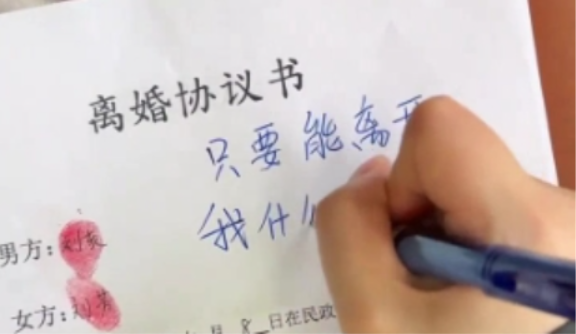 离婚协议书
只要能离开
我什么
男方：刘
女方：刘
月 8 日在民政